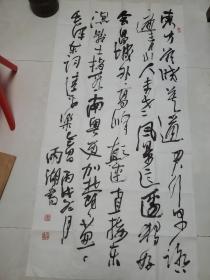 东方欲晓莫道君行早踏
遍青山人未老风景这边独好
会昌城外高峰颠连直接东
溟战士指看南粤更加郁郁葱葱
毛泽东词清平乐会昌丙戌六月
炳湖书